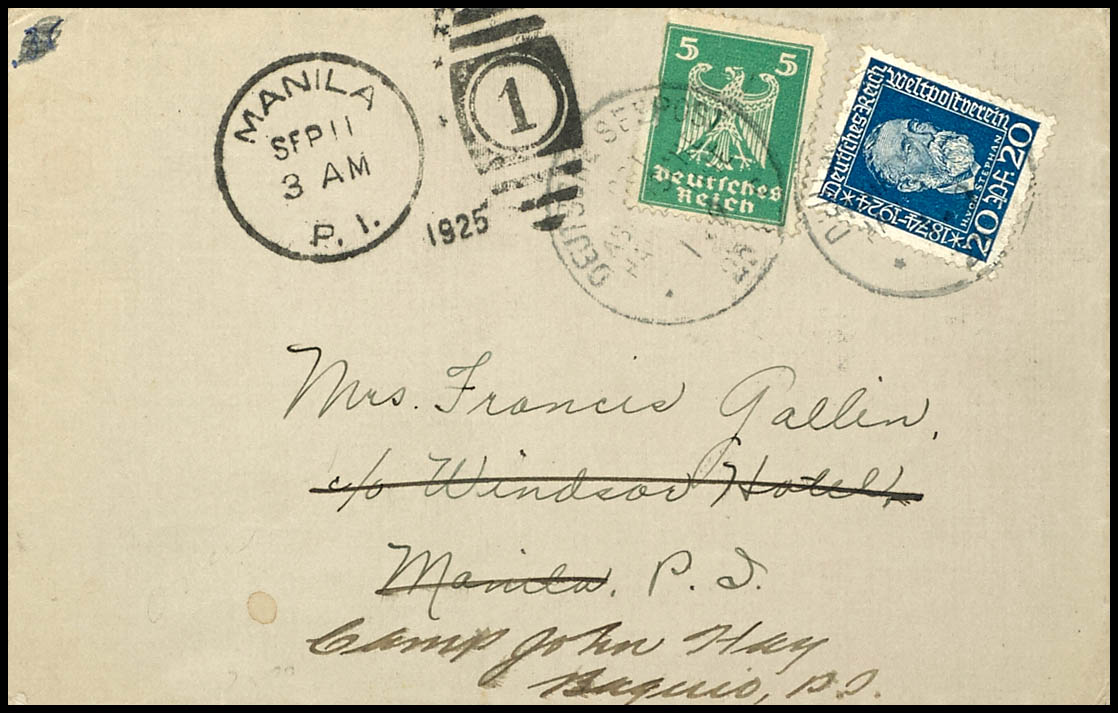 MANILA
SEP 11
3 AM
P. I.
1
1925
5 5
Deutsches
Reich
Deutsches Reich Weltpostverein
20 Pf. 20
H.V. STEPHAN
*1874-1924*
DEUTSCHE SEEPOST
Mrs. Francis Gallin,
c/o Windsor Hotel,
Manila. P. I.
Camp John Hay
Baguio, P.I.